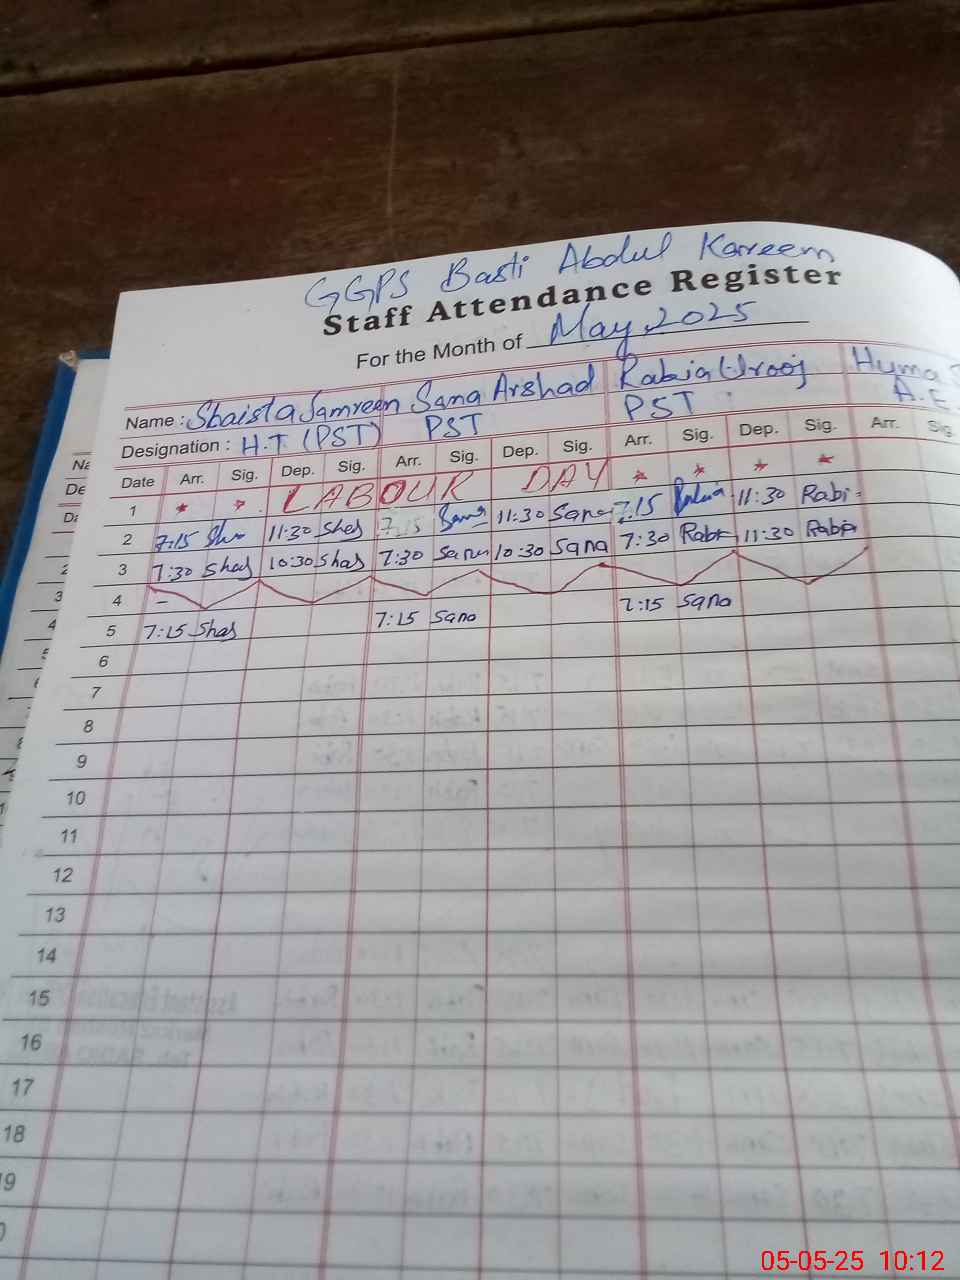 GGPS Basti Abdul Kareem
Staff Attendance Register
For the Month of May 2025
Name : Shaista Samreen Sana Arshad Rabia Urooj Hyma
Designation : H.T (PST) PST PST A.E.
Date Arr. Sig. Dep. Sig. Arr. Sig. Dep. Sig. Arr. Sig. Dep. Sig. Arr. Sig.
1 * * LABOUR DAY * * * *
2 7:15 Sha 11:30 Shas 7:15 Sana 11:30 Sana 7:15 Rabia 11:30 Rabi
3 7:30 Shas 10:30 Shas 7:30 Sana 10:30 Sana 7:30 Rabi 11:30 Rabia
4 –
5 7:15 Shas 7:15 Sana 7:15 Sana
6
7
8
9
10
11
12
13
14
15
16
17
18
19
Na
De
Da
05-05-25 10:12